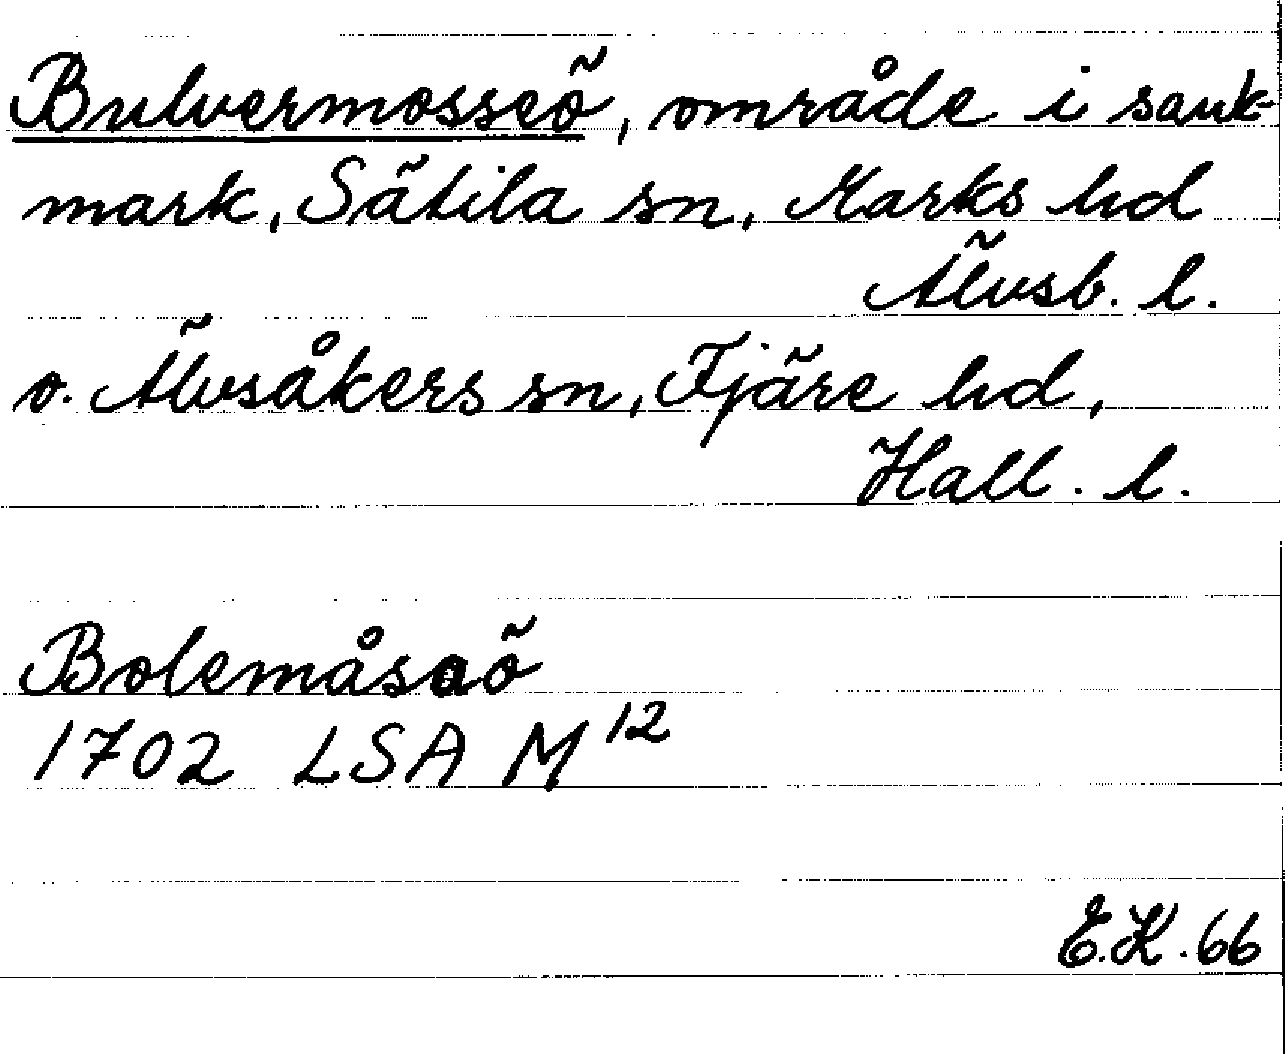 Bulvermosseö, område i sank-
mark, Sätila sn, Marks hd
Älvsb. l.
o. Älvsåkers sn, Fjäre hd,
Hall. l.
Bolemåsaö
1702 LSA M12
E.K. 66